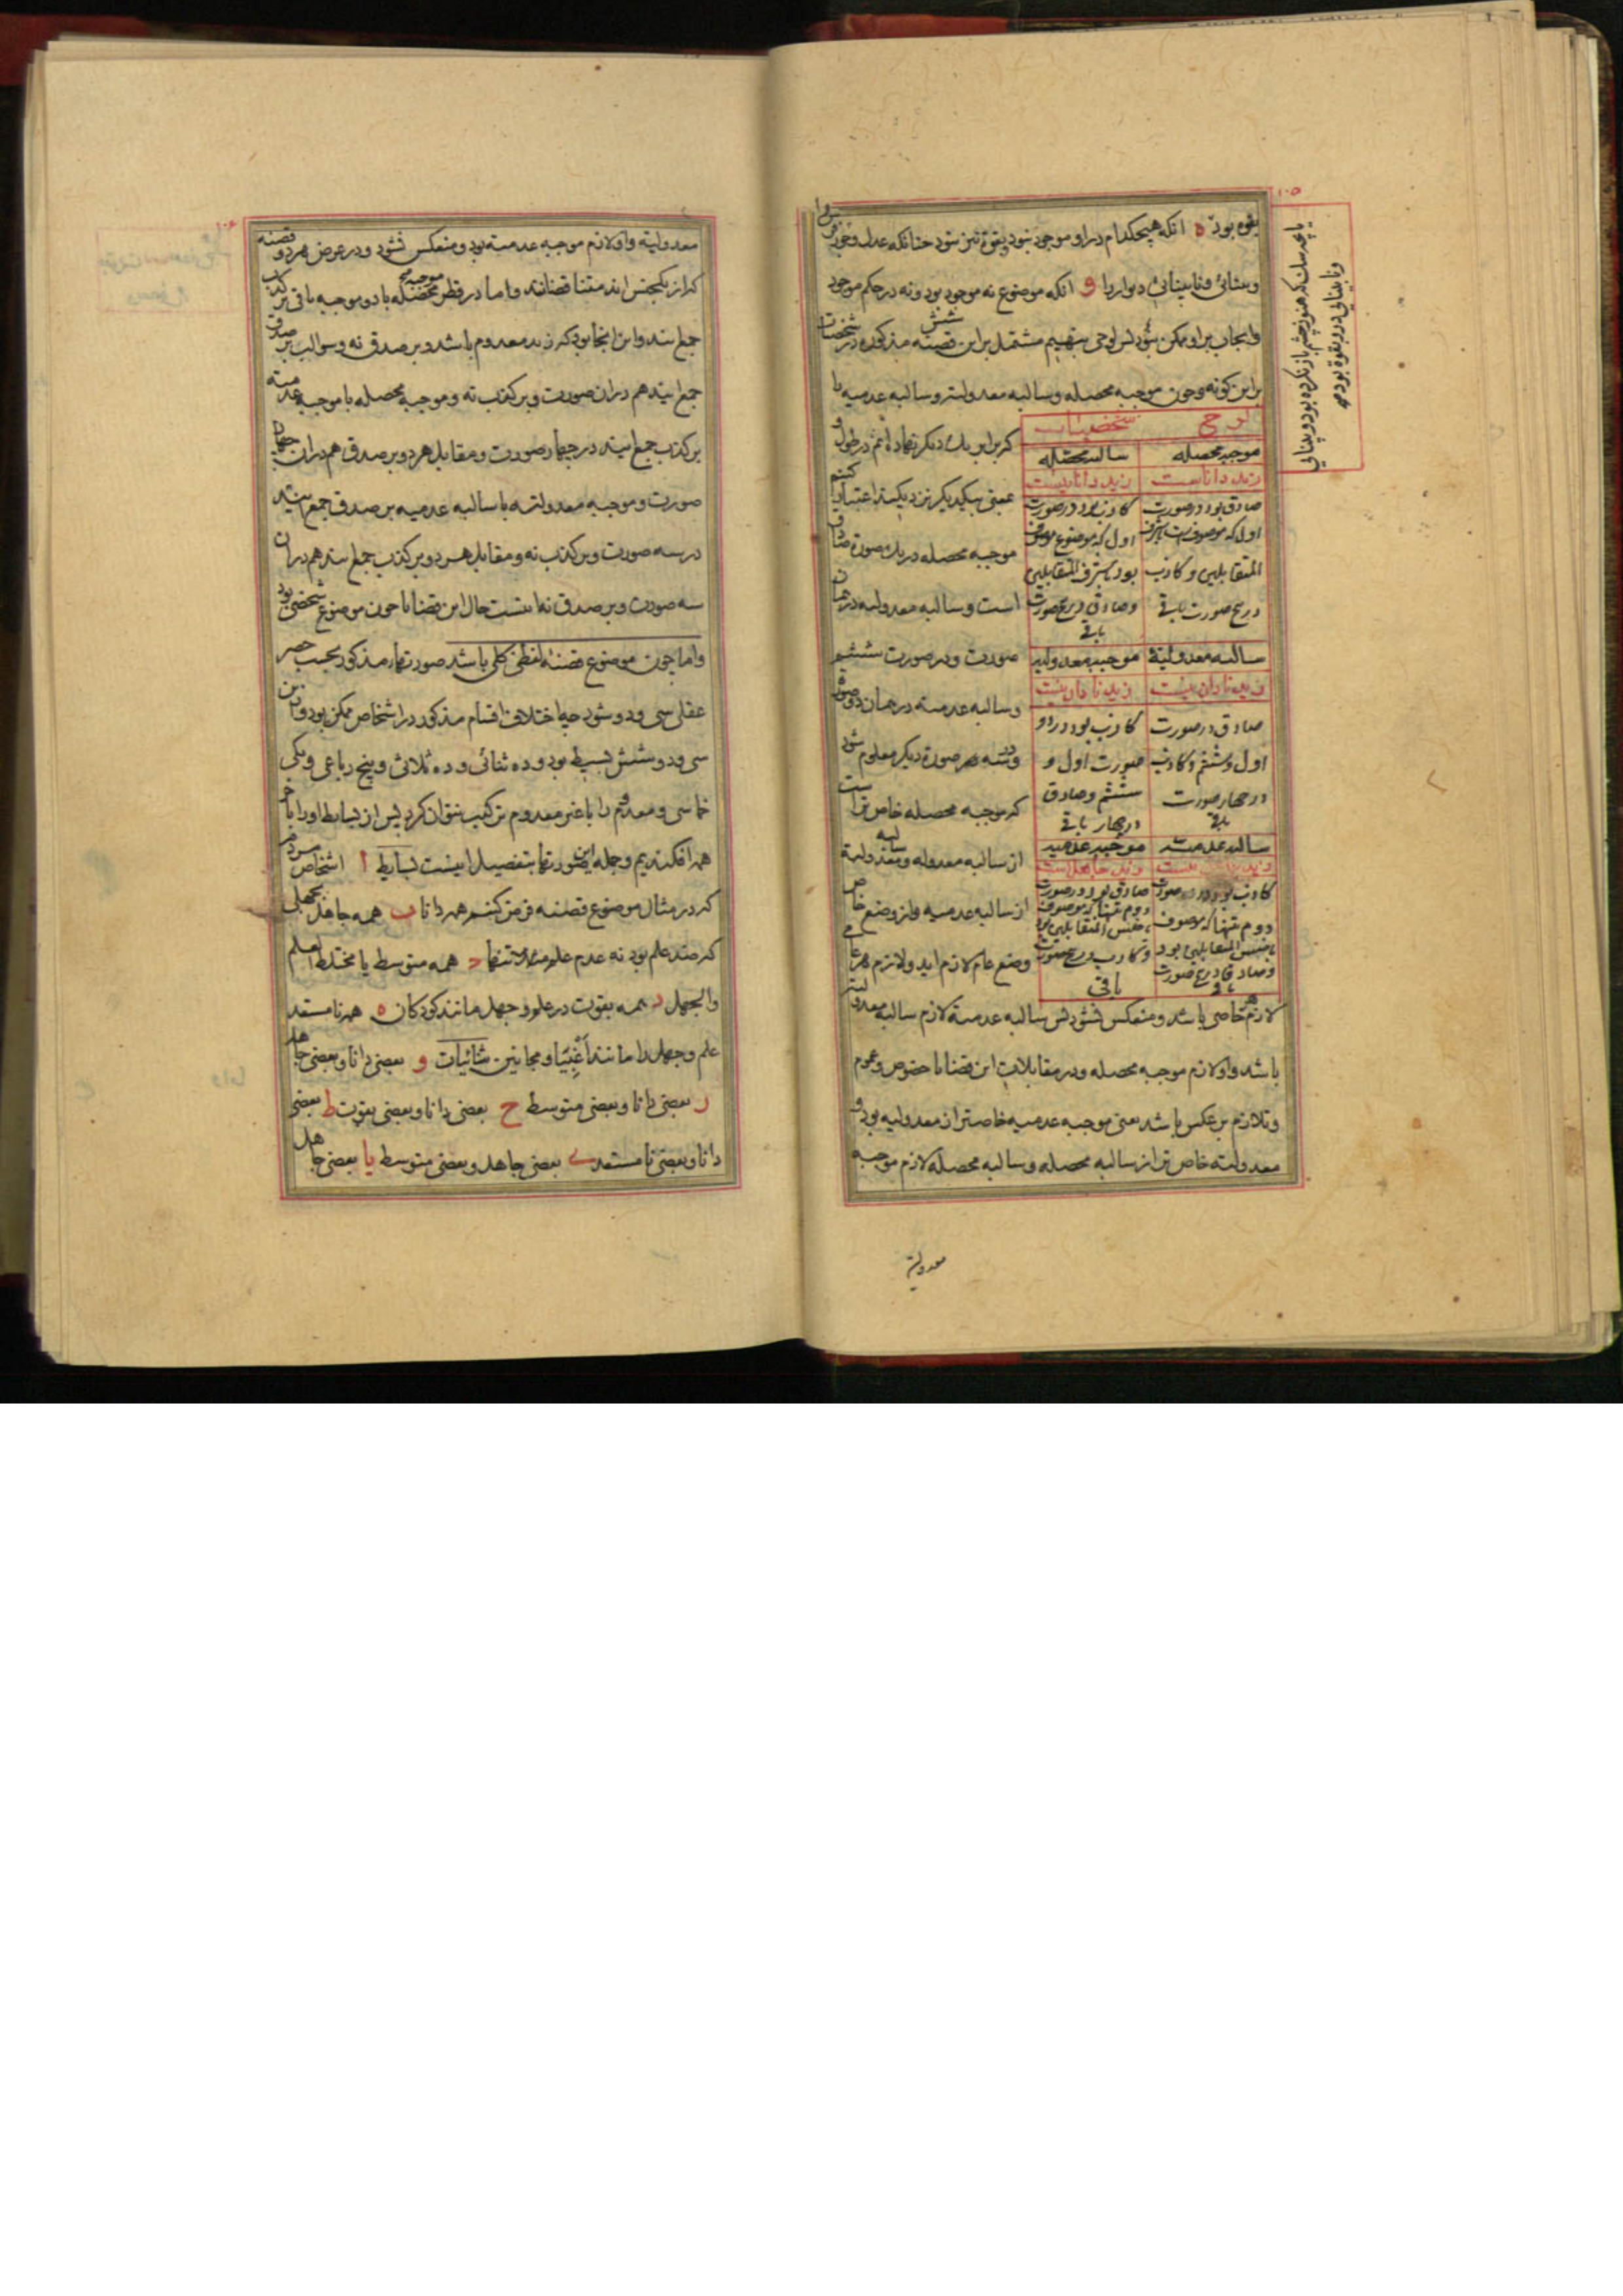 ۱۰۵
بقوه بود ه انکه هیچکدام در او موجود نبود و بقوة نیز نبود چنانکه عدل و جور
و بینائی و نابینائی دیوار را و انکه موضوع نه موجود بود و نه در حکم موجود
و ایجاب بر او ممکن نبود پس لوحی بنهیم مشتمل بر این شش قضیه مذکوره در شخصیات
بر این کونه و چون موجبه محصله و سالبه معدولیه و سالبه عدمیه را
لوح شخصیات
موجبه محصله سالبه محصله
زید داناست زید دانا نیست
صادق بود در صورت اول که موصوف است باشرف المتقابلین و کاذب در پنج صورت باقی
کاذب بود در صورت اول که موضوع موصوف بود باشرف المتقابلین و صادق در پنج صورت باقی
سالبه معدولیة موجبه معدولیه
زید نادان نیست زید نادان است
صادق در صورت اول و ششم و کاذب در چهار صورت باقی
کاذب بود در دو صورت اول و ششم و صادق در چهار باقی
سالبه عدمیه موجبه عدمیه
زید جاهل نیست زید جاهل است
کاذب بود در صورت دوم تنها که موصوف باخس المتقابلین بود و صادق در پنج صورت باقی
صادق بود در صورت دوم تنها که موصوف باخس المتقابلین بود و کاذب در پنج صورت باقی
که برابر یک دیکر نهاده ایم در طول و
عرض بیکدیکر نزدیک اعتبار کنیم
موجبه محصله در یک صورة صادق
است و سالبه معدولیه در همان
صورت و در صورت ششم
و سالبه عدمیه در همان دو صورة
و در سه صورة دیکر معلوم شود
که موجبه محصله خاص تر است
از سالبه معدوله و سالبه معدولیة
از سالبه عدمیه و از وضع خاص
وضع عام لازم اید و لازم هر عامی
لازم هر خاصی باشد و منعکس نشود پس سالبه عدمیة لازم سالبه معدولیه
باشد و او لازم موجبه محصله و در مقابلات این قضایا خصوص و عموم
و تلازم بر عکس باشد یعنی موجبه عدمیه خاصتر از معدولیه بود و
معدولیة خاص تر از سالبه محصله و سالبه محصله لازم موجبه
معدولیة
یا بچه سک که هنوز چشم باز نکرده بود و بینائی
و نابینائی در او بقوة بود
۱۰۶
معدولیة و او لازم موجبه عدمیة بود و منعکس نشود و در عرض هر دو قضیه
که از یکجنس اند متناقضانند و اما در قطر موجبه محصله با دو موجبه باقی بر کذب
جمع ایند و این انجا بود که زید معدوم باشد و بر صدق نه و سوالب بر صدق
جمع ایند هم در ان صورت و بر کذب نه و موجبه محصله با موجبه عدمیه
بر کذب جمع ایند در چهار صورت و مقابل هر دو بر صدق هم در ان چهار
صورت و موجبه معدولیه با سالبه عدمیه بر صدق جمع ایند
در سه صورت و بر کذب نه و مقابل هر دو بر کذب جمع ایند هم در ان
سه صورت و بر صدق نه اینست حال این قضایا چون موضوع شخصی بود
و اما چون موضوع قضیه لفظی کلی باشد صورتهاء مذکور بحسب حصر
عقلی سی و دو شود چه اختلاف اقسام مذکور در اشخاص ممکن بود و از این
سی و دو شش بسیط بود و ده ثنائی و ده ثلاثی و پنج رباعی و یکی
خماسی و معدوم را با غیر معدوم ترکیب نتوان کرد پس از بسایط او را با خر
همه افکندیم و جمله این صورتها بتفصیل اینست بسایط ا اشخاص مردم
که در مثال موضوع قضیه فرض کنیم همه دانا ب همه جاهل بجهلی
که ضد علم بود نه عدم علم تنها ج همه متوسط یا مختلط العلم
والجهل د همه بقوت در علم و جهل مانند کودکان ه همه نامستعد
علم و جهل را مانند اغبیا و مجانین ثنائیات و بعضی دانا و بعضی جاهل
ز بعضی دانا و بعضی متوسط ح بعضی دانا و بعضی بقوت ط بعضی
دانا و بعضی نامستعد ی بعضی جاهل و بعضی متوسط یا بعضی جاهل